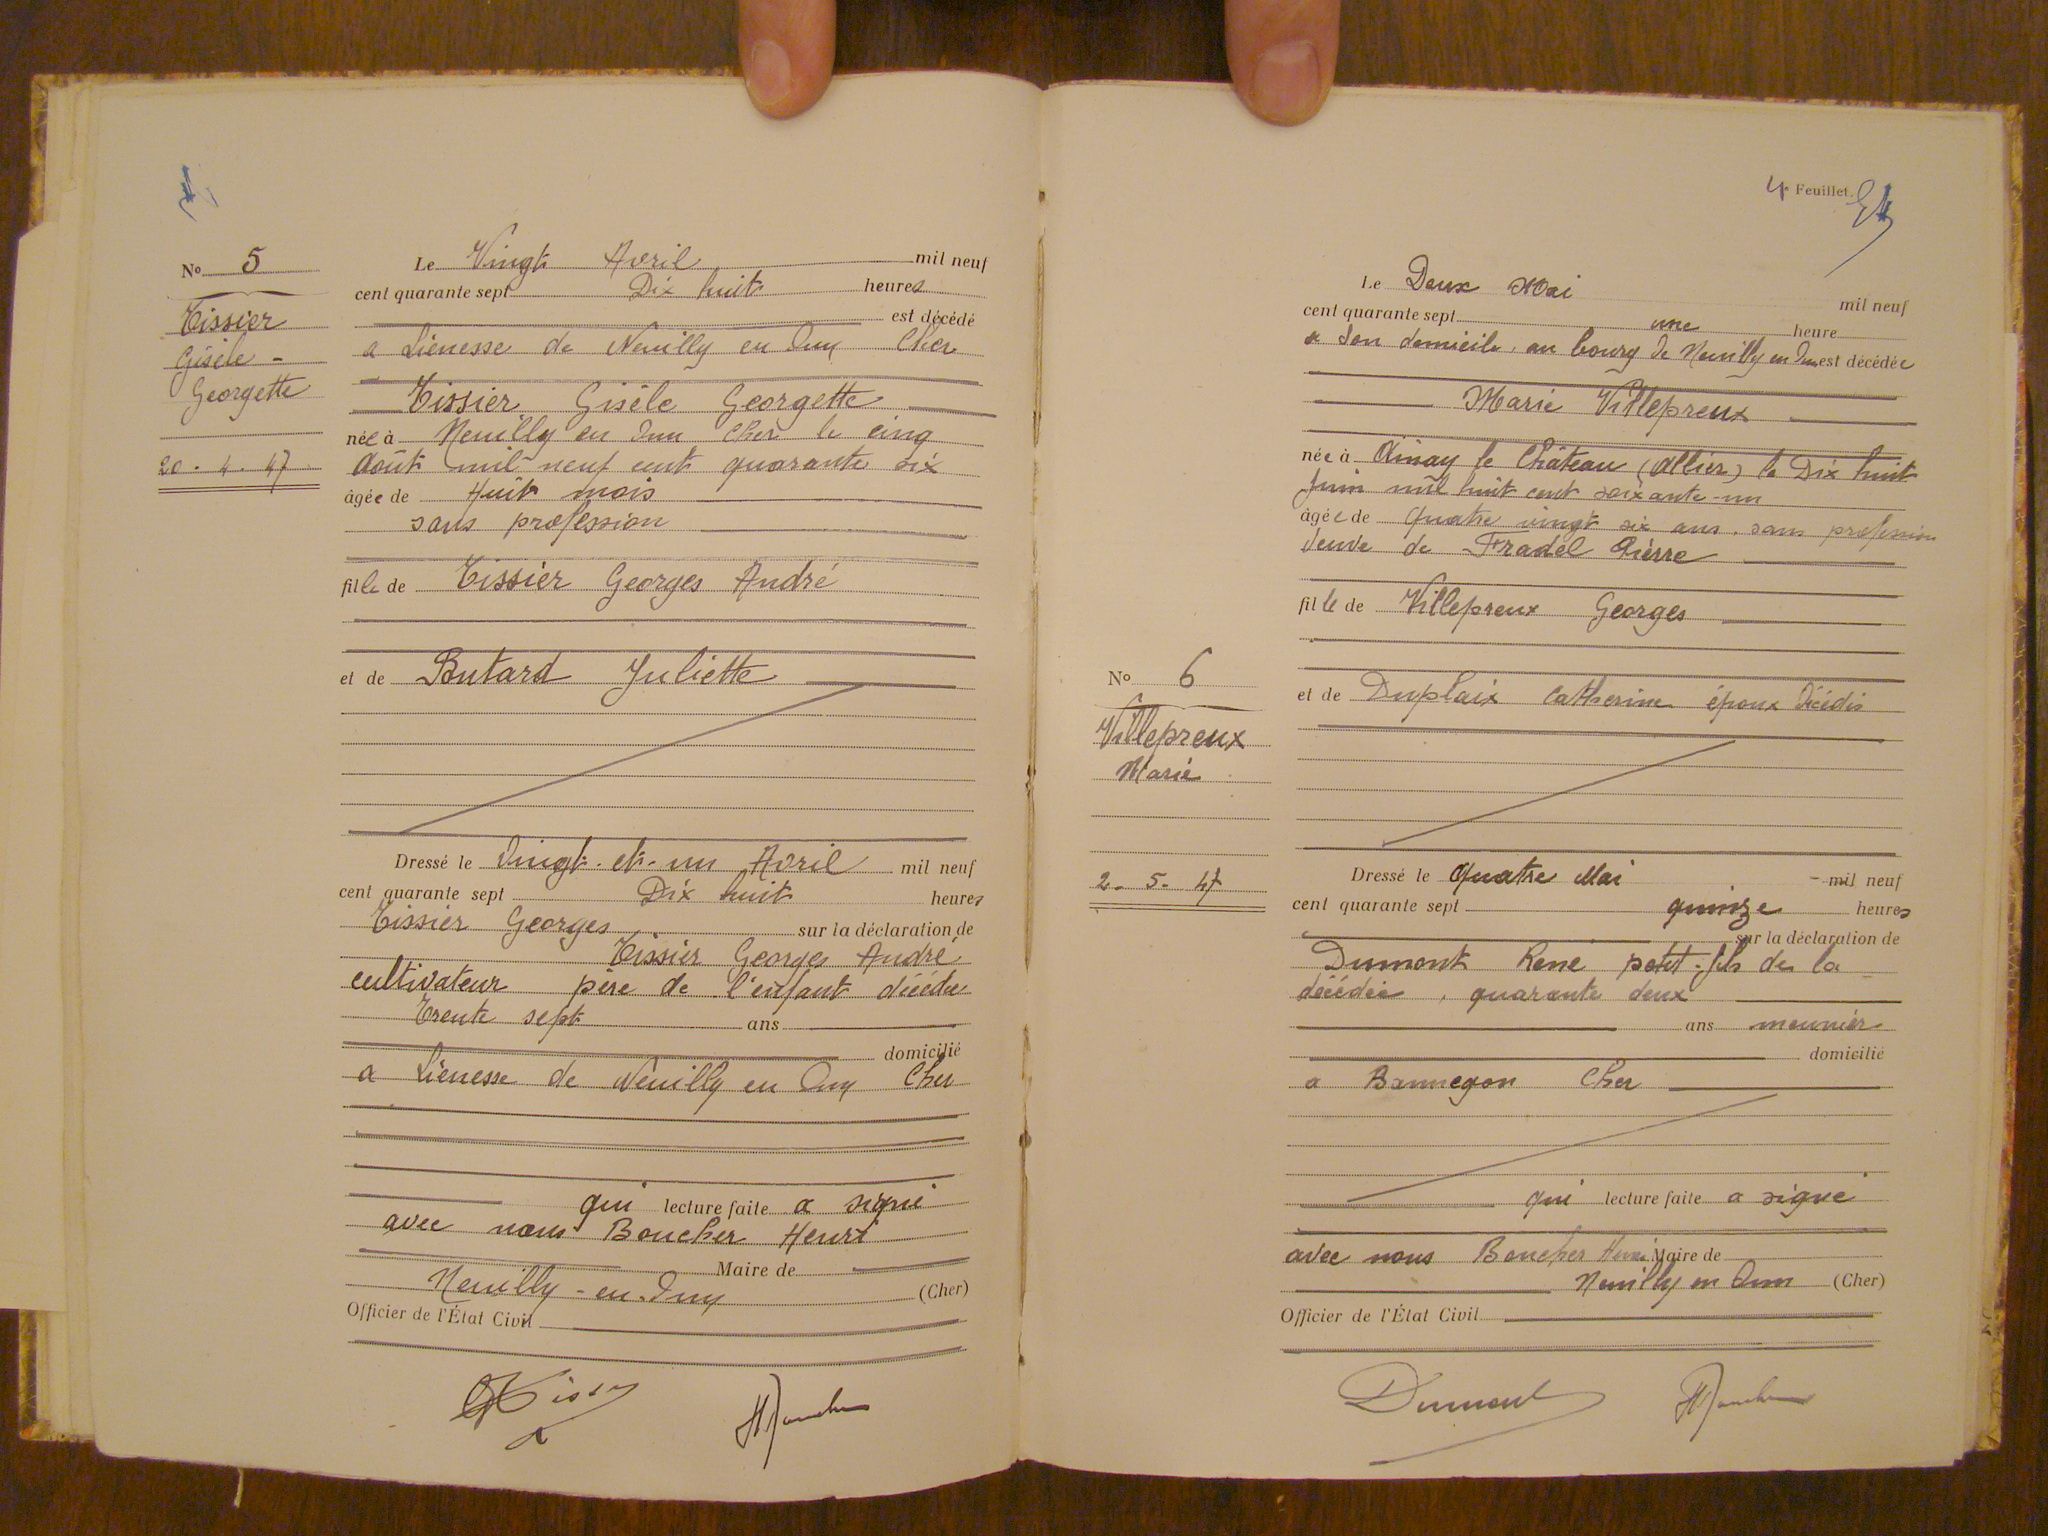 No 5
Tissier
Gisèle -
Georgette
20 . 4 . 47
Le Vingt Avril mil neuf
cent quarante sept Dix huit heures
est décédé
a Liènesse de Neuilly en Dun Cher
Tissier Gisèle Georgette
née à Neuilly en Dun Cher le cinq
Août mil neuf cent quarante six
âgée de Huit mois
sans profession
fille de Tissier Georges André
et de Butard Juliette
Dressé le Vingt-et-un Avril mil neuf
cent quarante sept Dix huit heures
Tissier Georges sur la déclaration de
Tissier Georges André
cultivateur père de l'enfant décédée
Trente sept ans
domicilié
a Liènesse de Neuilly en Dun Cher
qui lecture faite a signé
avec nous Boucher Henri
Maire de
Neuilly-en-Dun (Cher)
Officier de l'État Civil
4e Feuillet.
Le Deux Mai mil neuf
cent quarante sept une heure
a Son domicile au bourg de Neuilly en Dun est décédée
Marie Villepreux
née à Ainay le Château (Allier) le Dix huit
Juin mil huit cent soixante-un
âgée de quatre vingt six ans. sans profession
Veuve de Fradel Pierre
fille de Villepreux Georges
No 6
Villepreux
Marie
2 - 5 - 47
et de Duplaix Catherine époux décédés
Dressé le quatre Mai mil neuf
cent quarante sept quinze heures
sur la déclaration de
Dumont René petit-fils de la
décédée, quarante deux
ans meunier
domicilié
a Bannegon Cher
qui lecture faite a signé
avec nous Boucher Henri Maire de
Neuilly en Dun (Cher)
Officier de l'État Civil
Dumont